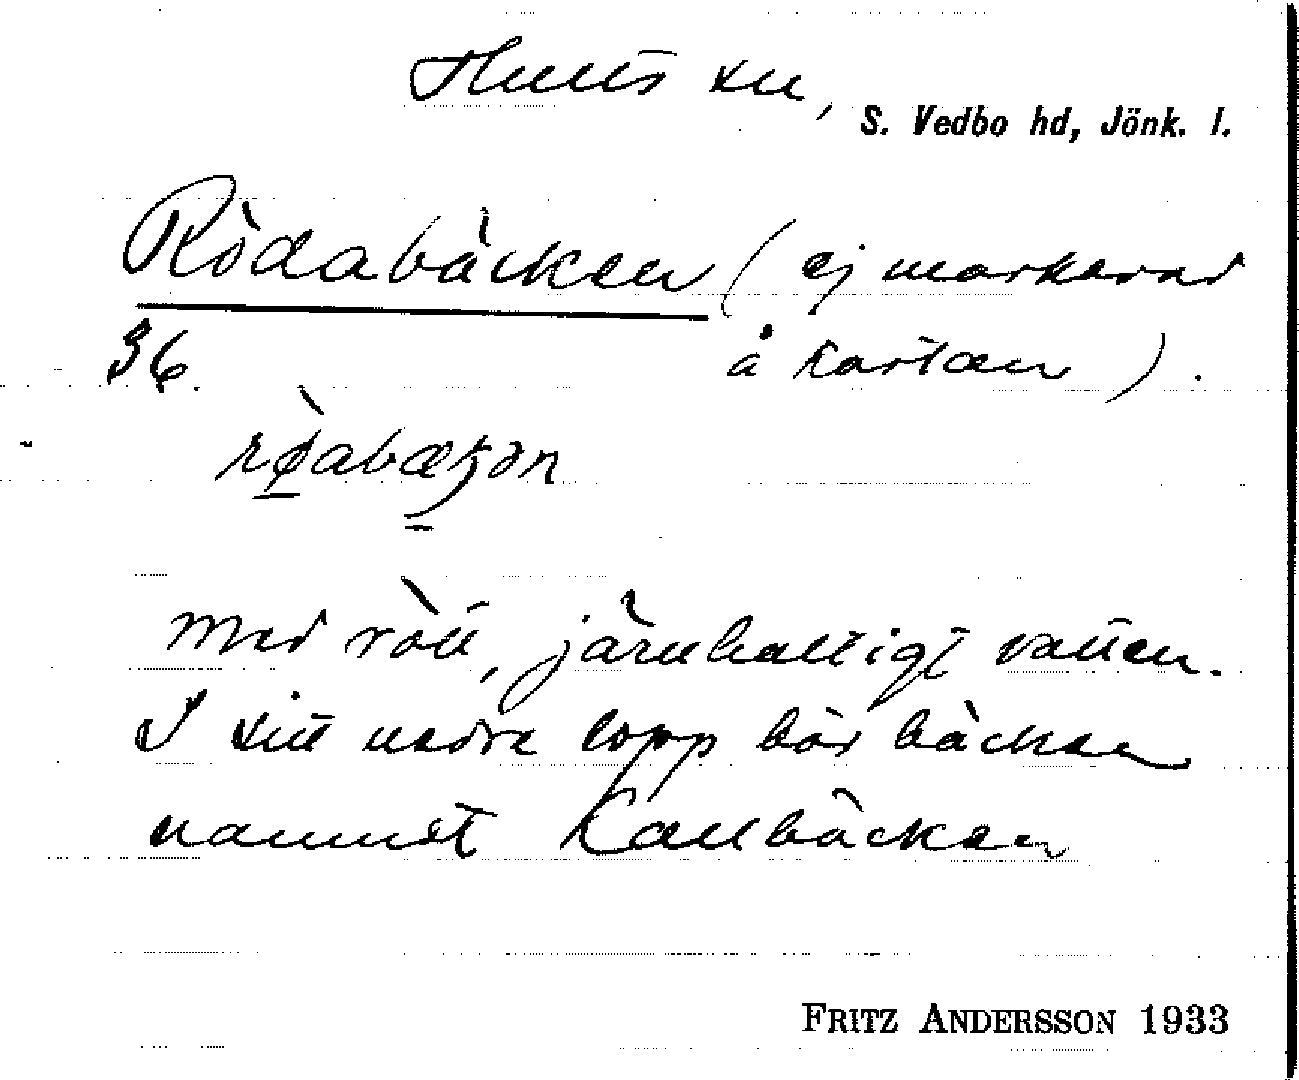 Hults sn,
S. Vedbo hd, Jönk. l.
Rödabäcken (ej markerad
36. å kartan).
rø̀abæʒən
med rött, järnhaltigt vatten.
I sitt nedre lopp bär bäcken
namnet Kallbäcken
FRITZ ANDERSSON 1933